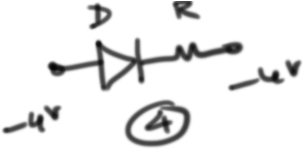 D R
-4V
-4V
4